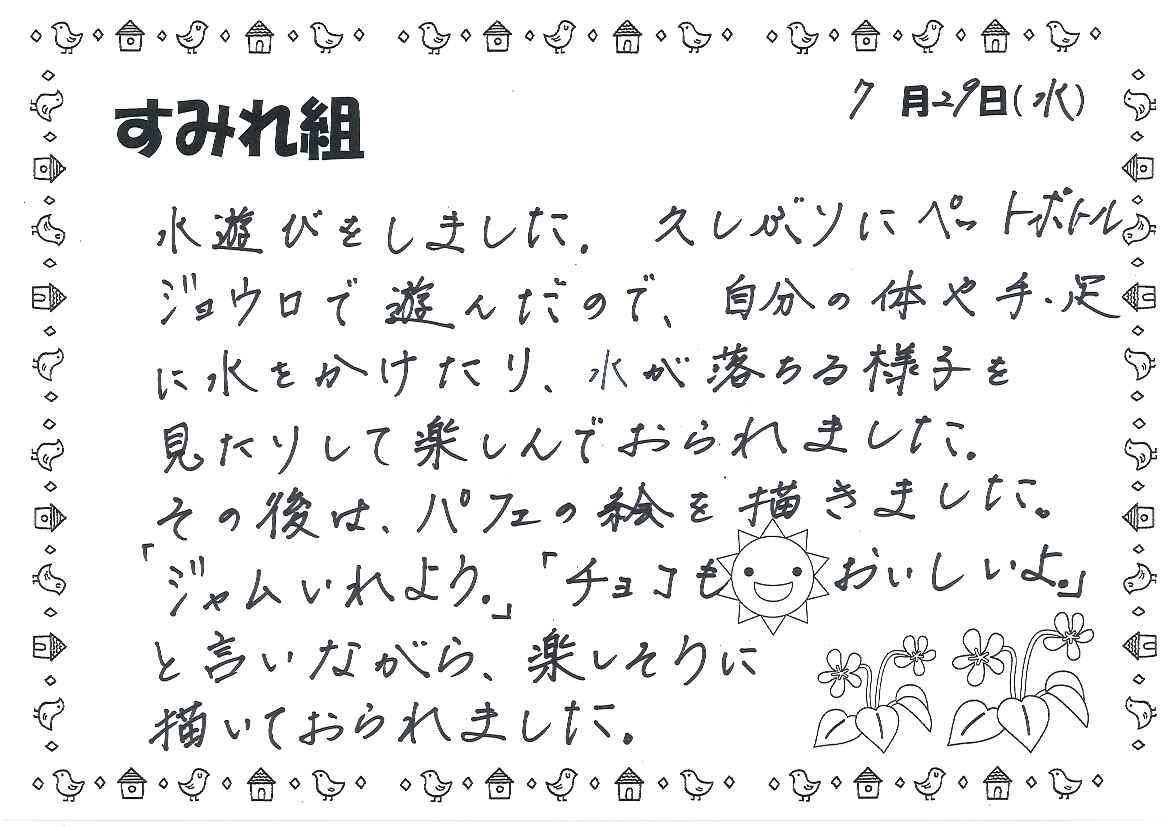 すみれ組
7月29日(水)
水遊びをしました。久しぶりにペットボトル
ジョウロで遊んだので、自分の体や手・足
に水をかけたり、水が落ちる様子を
見たりして楽しんでおられました。
その後は、パフェの絵を描きました。
「ジャムいれよう。」「チョコもおいしいよ。」
と言いながら、楽しそうに
描いておられました。